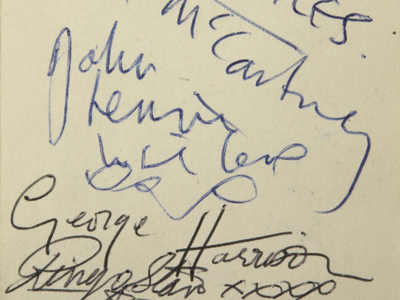 LES.
McCartney
John
Lennon
with love
George Harrison
Ringo Starr xxxxx